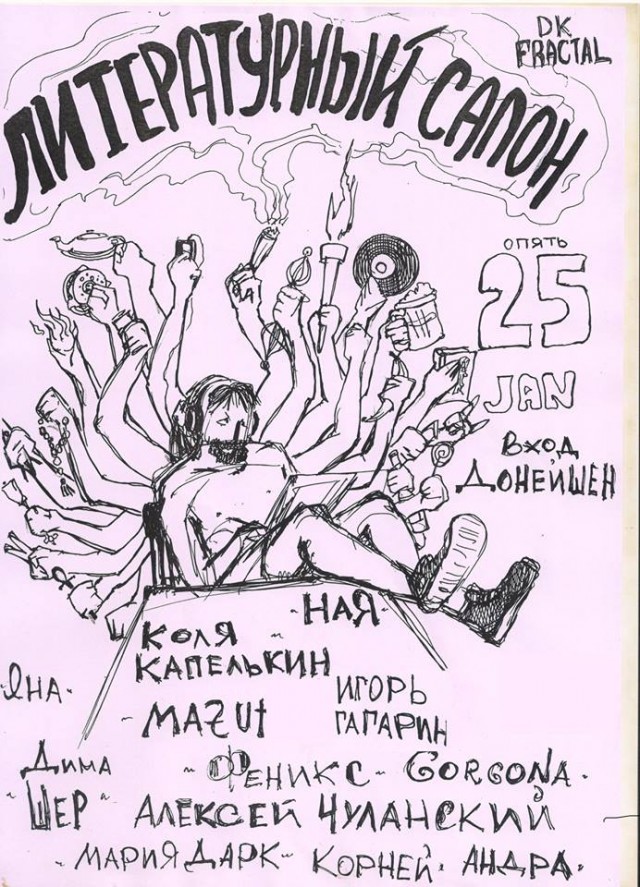 DK
FRACTAL
ЛИТЕРАТУРНЫЙ САЛОН
ОПЯТЬ
25
JAN
ВХОД
ДОНЕЙШЕН
- НАЯ -
КОЛЯ -
КАПЕЛЬКИН
ЯНА -
ИГОРЬ
ГАГАРИН
- MAZUt
ДИМА
- ШЕР -
- ФЕНИКС - GORGONA -
АЛЕКСЕЙ ЧУЛАНСКИЙ
- МАРИЯ ДАРК - КОРНЕЙ - АНДРА -